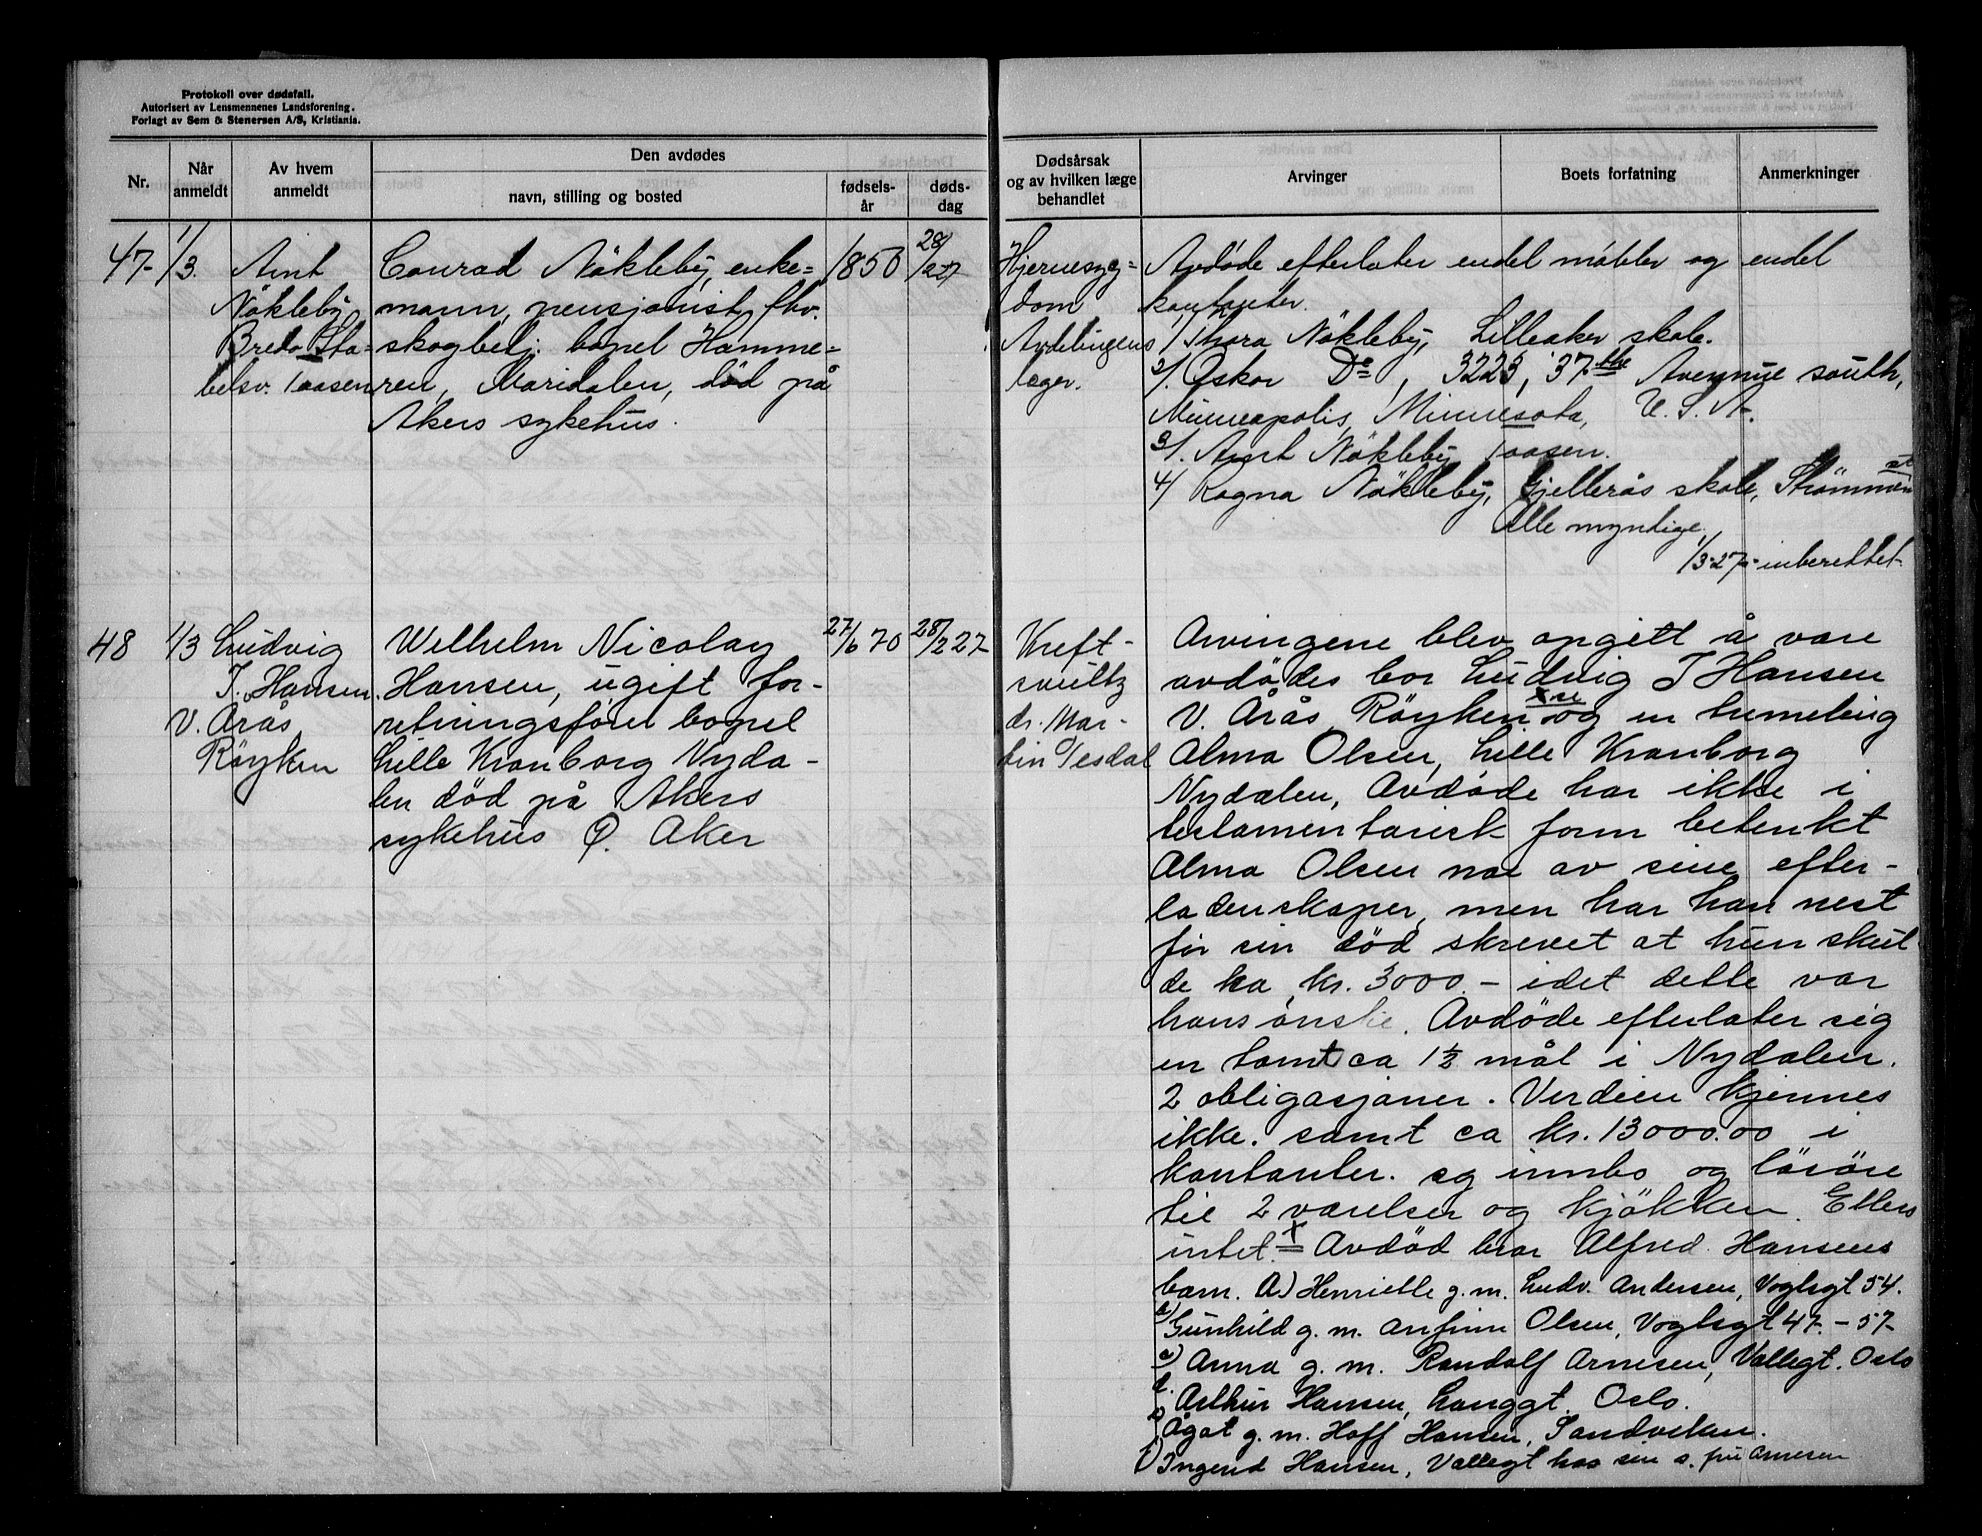 Protokoll over dødsfall.
Autorisert av Lensmennenes Landsforening.
Forlagt av Sem & Stenersen A/S, Kristiania.
Nr.
Når anmeldt
Av hvem anmeldt
Den avdødes
navn, stilling og bosted
fødsels-år
døds-dag
Dødsårsak og av hvilken læge behandlet
Arvinger
Boets forfatning
Anmerkninger
47-
1/3.
Arnt
Nökleby
Bredo Sta-
belsv. Taasen
Conrad Nökleby, enke-
mann, pensjonist, fhv.
skogbetj. bopel Hamme-
ren, Maridalen, död på
Akers sykehus.
1850
28/2-27
Hjernesyg-
dom
Avdelingens
læger.
Avdöde efterlater endel möbler og endel
kontanter.
1/ Thora Nökleby, Lilleaker skole.
2/. Oskar Do, 3223, 37the Avennue south,
Minneapolis, Minnesota, U.S.A.
3/. Arnt Nökleby Taasen.
4/ Ragna Nökleby, Gjellerås skole, Strömmen st
Alle myndige.
1/3-27- inberettet-
48
1/3
Ludvig
T. Hansen
V. Arås
Röyken
Wilhelm Nicolay
Hansen, ugift for-
retningsförer bopel
Lille Kranborg Nyda-
len död på Akers
sykehus Ö. Aker
27/6 70
28/2 27-
Kreft-
svultz
dr. Mar-
tin Tesdal
Arvingene blev opgitt å være
avdödes bor Ludvig T Hansen
V. Årås, Röyken x se og en tremeling
Alma Olsen, Lille Kranborg
Nydalen, Avdöde har ikke i
testamentarisk form betenkt
Alma Olsen noe av sine efter-
ladenskaper, men har han nest
för sin död skrevet at hun skul-
de ha kr. 3000.- idet dette var
hans önske. Avdöde efterlater sig
en tomt ca 1½ mål i Nydalen.
2 obligasjoner. Verdien kjennes
ikke. samt ca kr. 13000.00 i
kontanter. og innbo og lösöre
til 2 værelser og kjökken. Ellers
intet. x= Avdöd bror Alfred Hansens
barn. A) Henriette g. m. Ludv. Andersen, Vogtsgt 54.
b) Gunhild g. m. Anfinn Olsen, Vogtsgt 47.-57-
c) Anna g. m. Randolf Arnesen, Vallegt. Oslo
d. Arthur Hansen, Langgt. Oslo.
e) Ågot g. m. Hoff Hansen, Sandviken.
f) Ingerid Hansen, Vallegt hos sin s. fru Arnesen